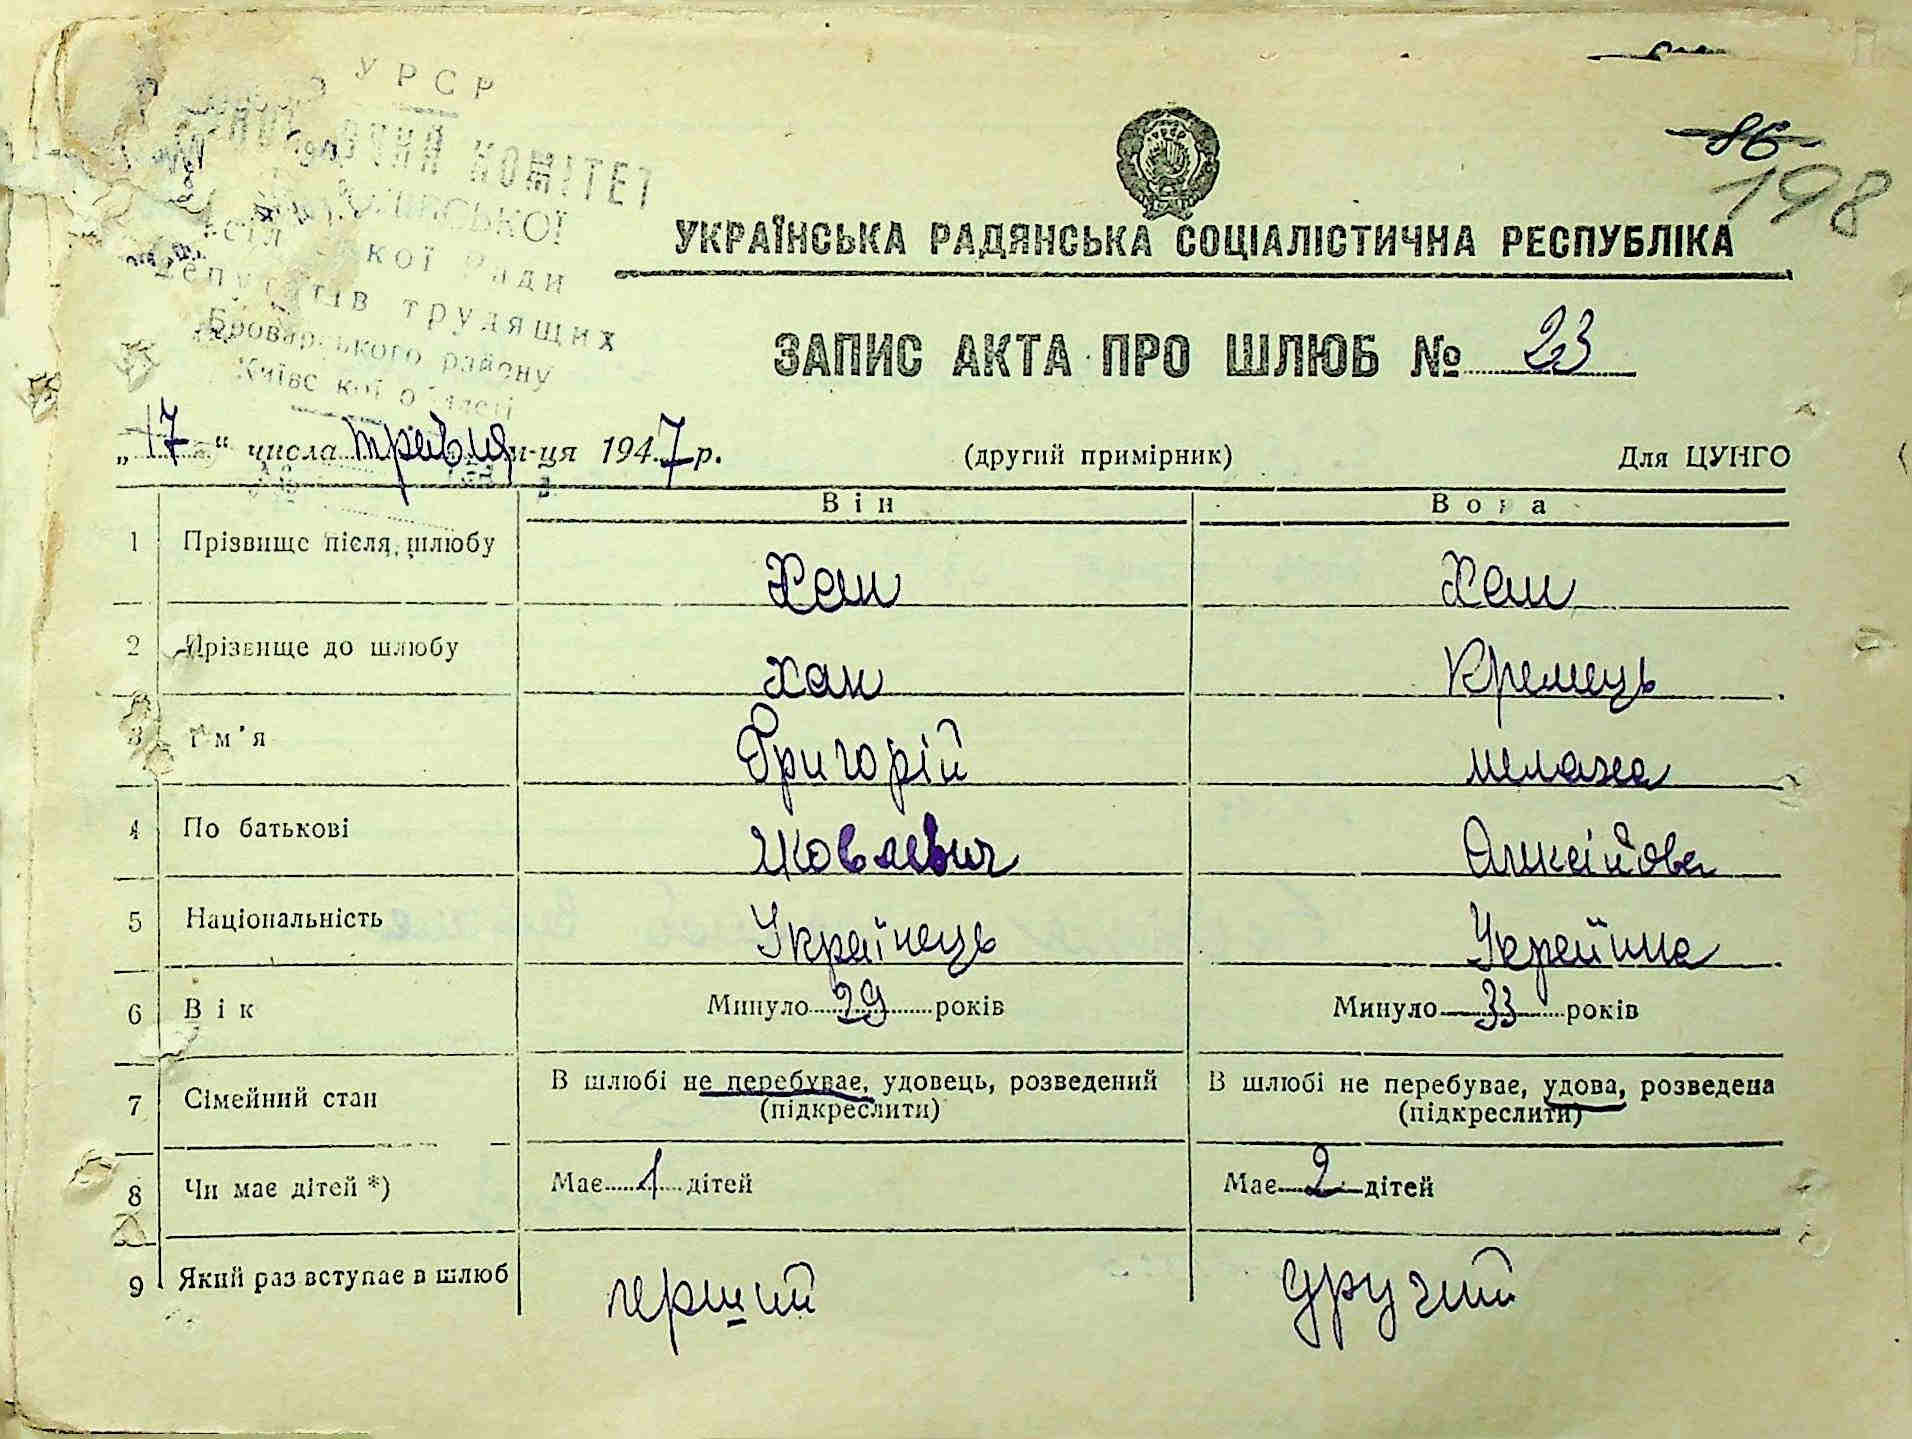 УРСР
КОМІТЕТ
депутатів трудящих
Броварського району
Київської області
86
198
УКРАЇНСЬКА РАДЯНСЬКА СОЦІАЛІСТИЧНА РЕСПУБЛІКА
ЗАПИС АКТА ПРО ШЛЮБ № 23
„17“ числа травля м-ця 1947 р. (другий примірник) Для ЦУНГО
Він Вона
1 Прізвище після шлюбу Хан Хан
2 Прізвище до шлюбу Хан Кремець
3 Ім'я Григорій
4 По батькові Яковлевич
5 Національність Українець
6 Вік Минуло 29 років Минуло 33 років
7 Сімейний стан В шлюбі не перебуває, удовець, розведений В шлюбі не перебуває, удова, розведена
(підкреслити) (підкреслити)
8 Чи має дітей *) Має 1 дітей Має 2 дітей
9 Який раз вступає в шлюб перший другий